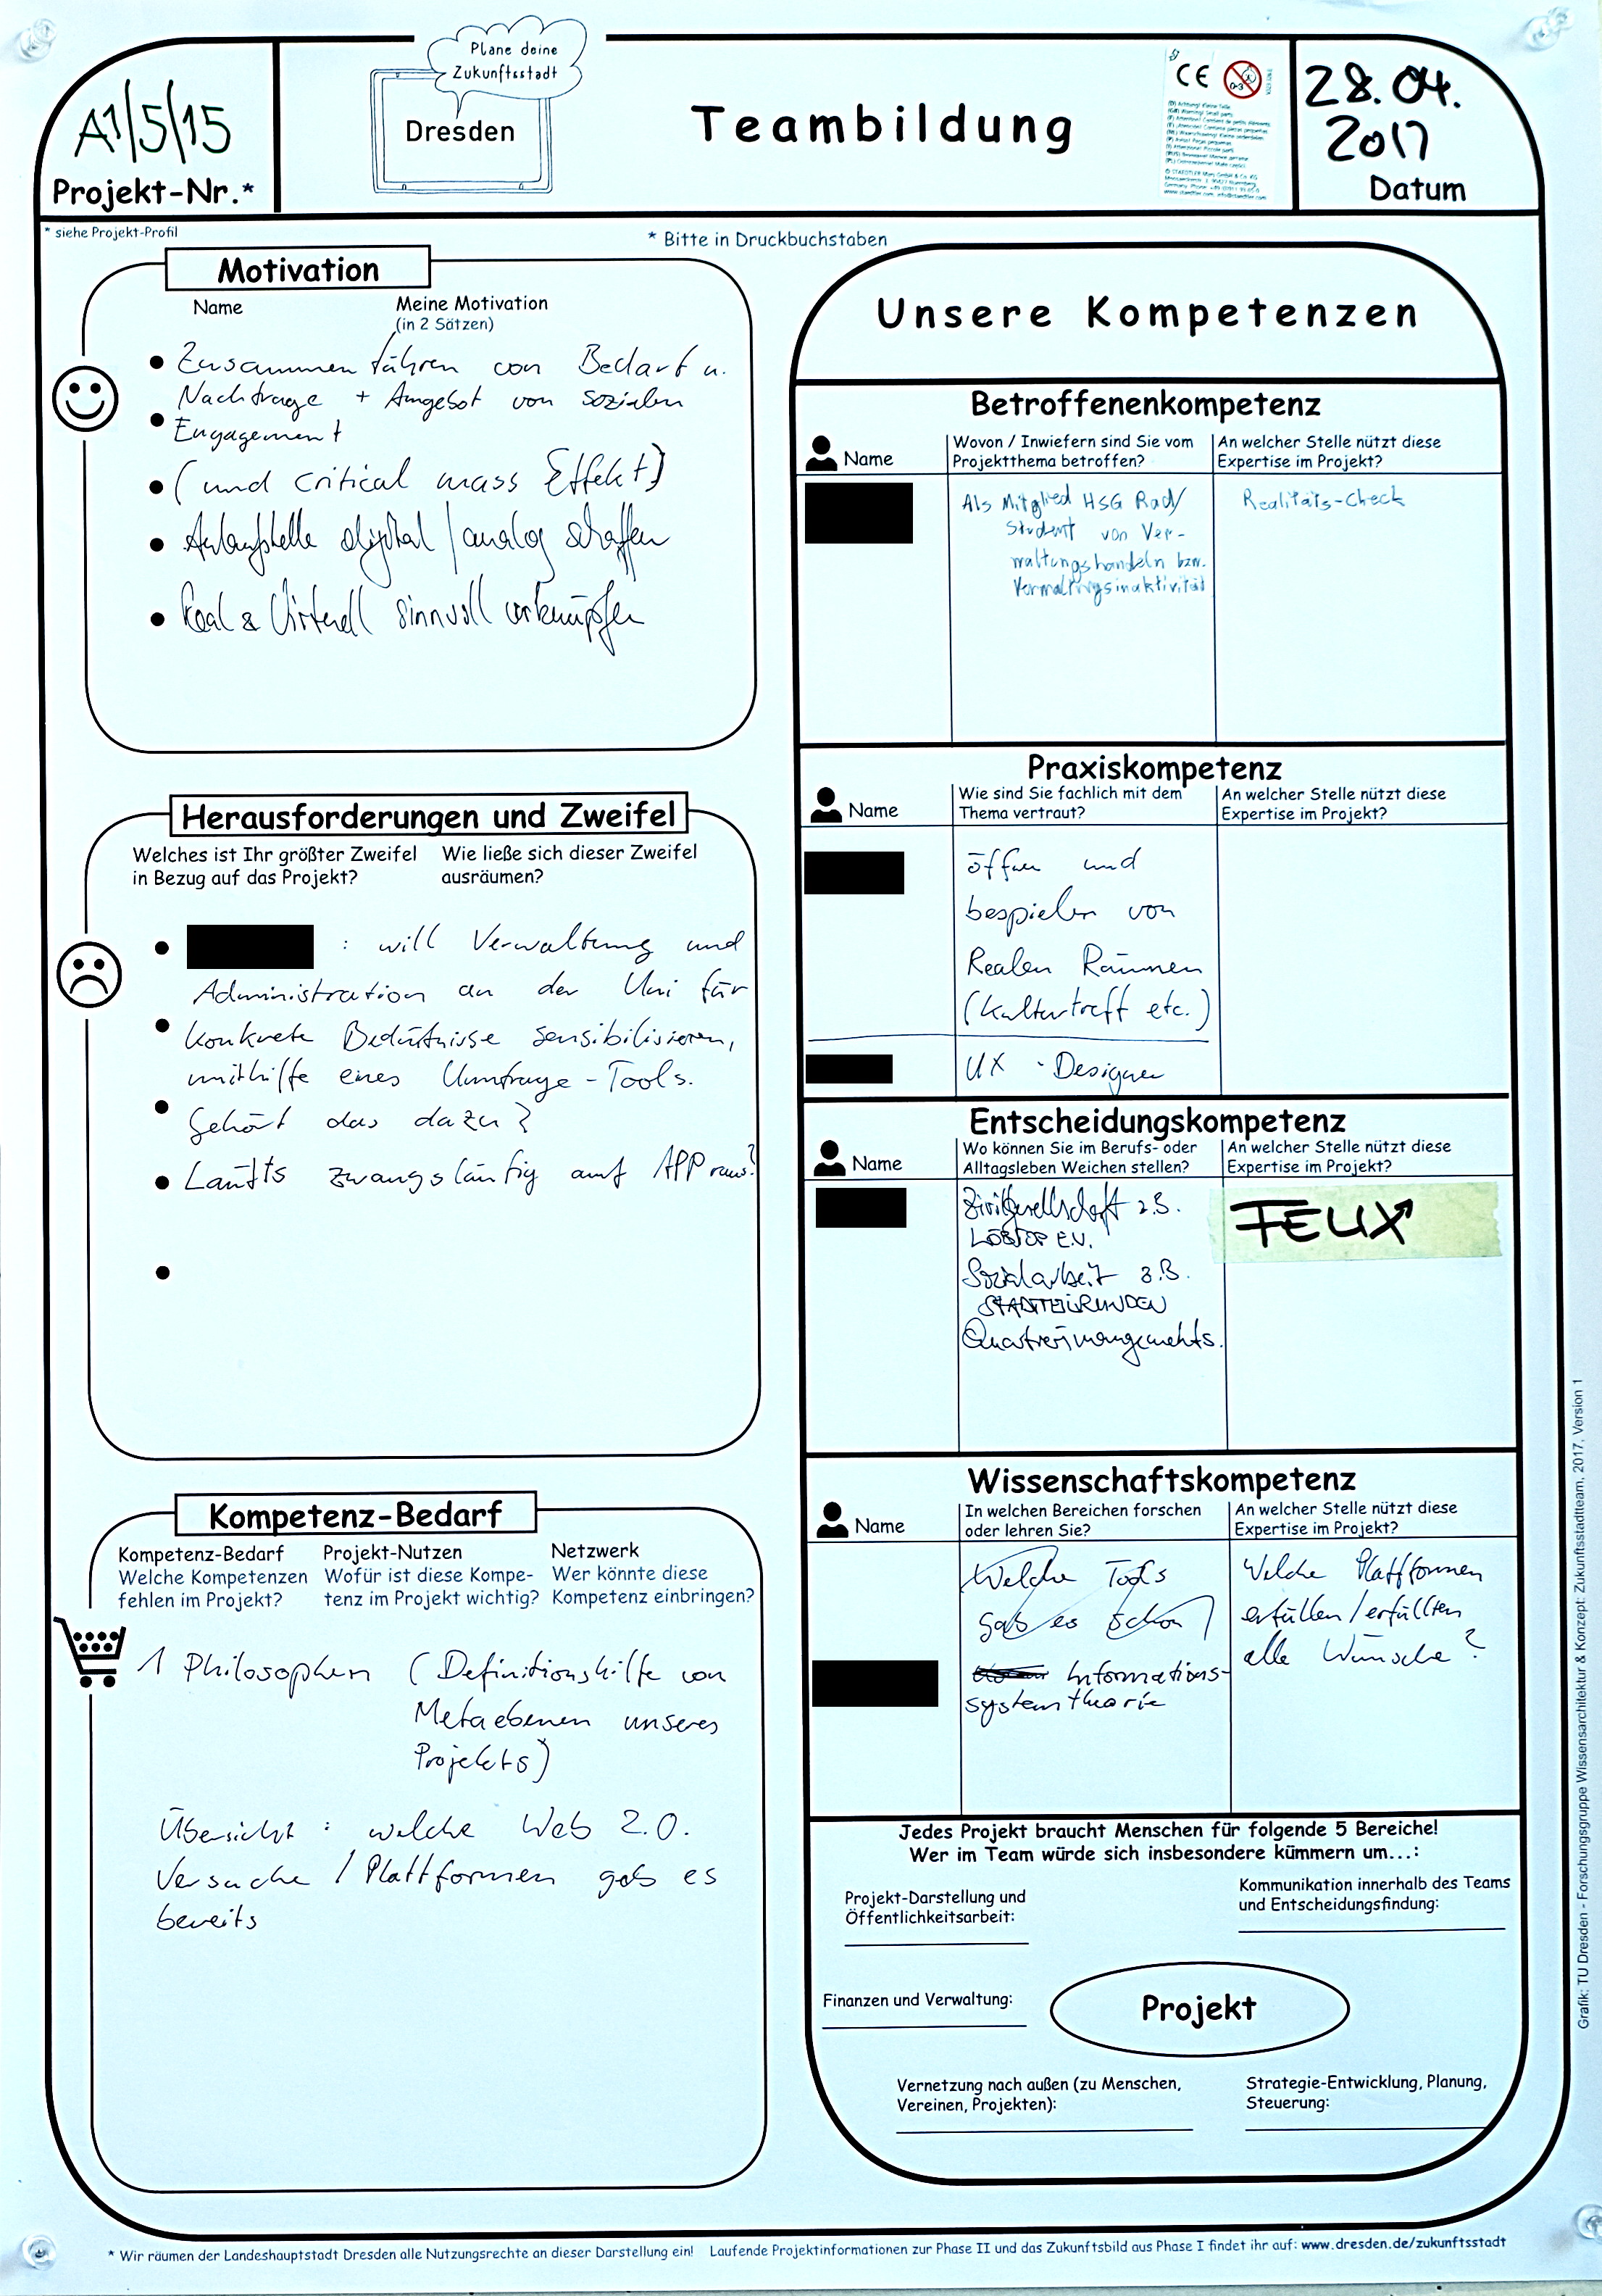 Plane deine
Zukunftsstadt
Dresden
A1/5/15
Projekt-Nr.*
Teambildung
CE
0-3
28.04.
2017
Datum
* siehe Projekt-Profil
* Bitte in Druckbuchstaben
Motivation
Name
Meine Motivation
(in 2 Sätzen)
Zusammenführen von Bedarf u.
Nachfrage + Amgebot von sozialen
Engagement
(und critical mass Effekt)
Anlaufstelle digital/analog schaffen
Real & Virtuell sinnvoll verknüpfen
Herausforderungen und Zweifel
Welches ist Ihr größter Zweifel
in Bezug auf das Projekt?
Wie ließe sich dieser Zweifel
ausräumen?
: will Verwaltung und
Administration an der Uni für
konkrete Bedürfnisse sensibilisieren,
mithilfe eines Umfrage-Tools.
Gehört das dazu?
Läufts zwangsläufig auf APP raus?
Kompetenz-Bedarf
Kompetenz-Bedarf
Welche Kompetenzen
fehlen im Projekt?
Projekt-Nutzen
Wofür ist diese Kompe-
tenz im Projekt wichtig?
Netzwerk
Wer könnte diese
Kompetenz einbringen?
1 Philosophen (Definitionshilfe von
Metaebenen unseres
Projekts)
Übersicht: welche Web 2.0.
Versuche / Plattformen gab es
bereits
Unsere Kompetenzen
Betroffenenkompetenz
Name
Wovon / Inwiefern sind Sie vom
Projektthema betroffen?
An welcher Stelle nützt diese
Expertise im Projekt?
Als Mitglied HSG Rad/
Student von Ver-
waltungshandeln bzw.
Verwaltungsinaktivität
Realitäts-Check
Praxiskompetenz
Name
Wie sind Sie fachlich mit dem
Thema vertraut?
An welcher Stelle nützt diese
Expertise im Projekt?
öffnen und
bespielen von
Realen Räumen
(Kulturtreff etc.)
UX-Designer
Entscheidungskompetenz
Name
Wo können Sie im Berufs- oder
Alltagsleben Weichen stellen?
An welcher Stelle nützt diese
Expertise im Projekt?
Zivilgesellschaft z.B.
LÖBTOP E.V.
Sozialarbeit z.B.
STADTTEILRUNDEN
Quartiersmangements.
FELIX
Wissenschaftskompetenz
Name
In welchen Bereichen forschen
oder lehren Sie?
An welcher Stelle nützt diese
Expertise im Projekt?
Welche Tools
gab es schon
Informations-
systemtheorie
Welche Plattformen
erfüllen/erfüllten
alle Wünsche?
Jedes Projekt braucht Menschen für folgende 5 Bereiche!
Wer im Team würde sich insbesondere kümmern um...:
Projekt-Darstellung und
Öffentlichkeitsarbeit:
Kommunikation innerhalb des Teams
und Entscheidungsfindung:
Finanzen und Verwaltung:
Projekt
Vernetzung nach außen (zu Menschen,
Vereinen, Projekten):
Strategie-Entwicklung, Planung,
Steuerung:
Grafik: TU Dresden - Forschungsgruppe Wissensarchitektur & Konzept: Zukunftsstadtteam, 2017, Version 1
* Wir räumen der Landeshauptstadt Dresden alle Nutzungsrechte an dieser Darstellung ein! Laufende Projektinformationen zur Phase II und das Zukunftsbild aus Phase I findet ihr auf: www.dresden.de/zukunftsstadt